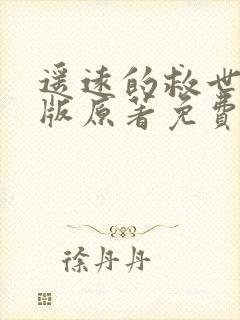 遥远的救世
版原著免费
徐丹丹